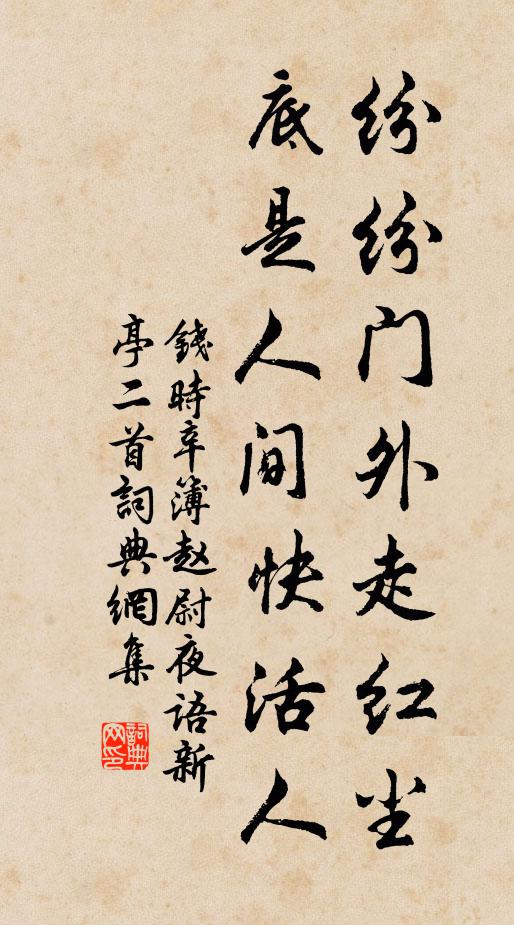 纷纷门外走红尘
底是人间快活人
錢時辛簿赵尉夜语新
亭二首詞典網集
詞典网印